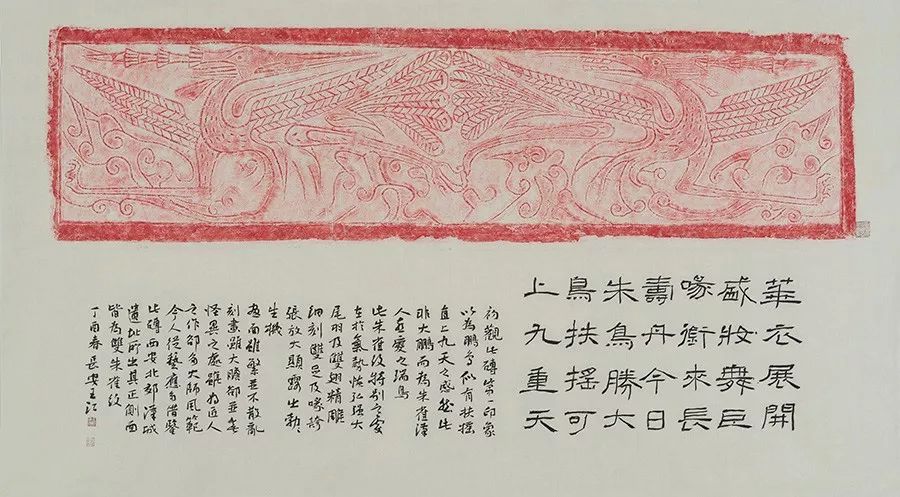 華衣展開
盛妝舞巨
喙銜來長
壽丹今日
朱鳥勝大
鳥扶搖可
上九重天
初觀此磚第一印象
以為鵬鳥似有扶搖
直上九天之感然此
非大鵬而為朱雀漢
人喜慶之瑞鳥
此朱雀紋特別之處
在於氣勢恢弘大
尾羽及雙翅精雕
細刻雙足及喙誇
張放大顯躍出勃〻
生機
畫面雖繁並不散亂
刻畫雖大膽卻並無
怪異之處雖為匠人
之作卻多大師風範
今人從藝應多借鑒
此磚西安北郊漢城
遺址所出其正側面
皆為雙朱雀紋
丁酉春長安王江